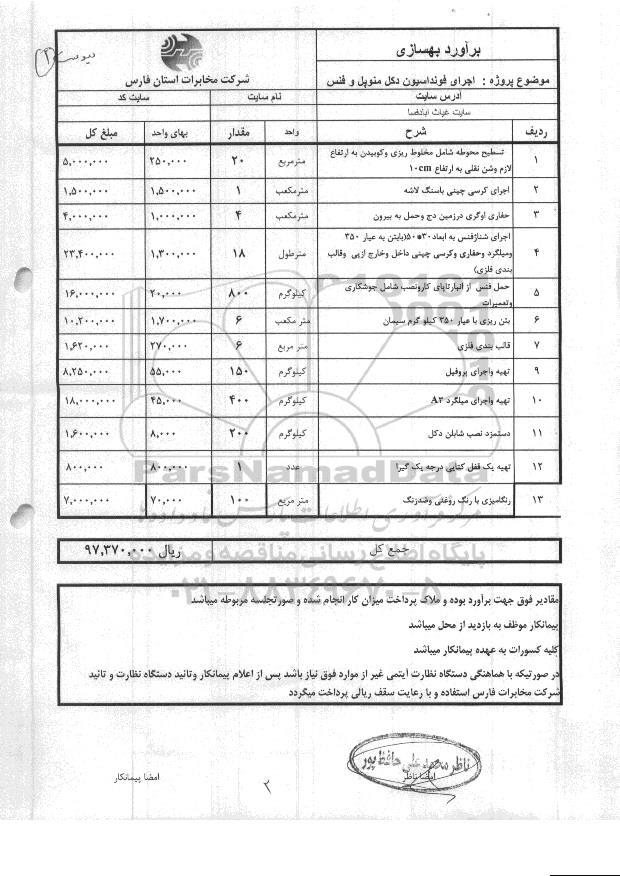 پیوست (۲)
برآورد بهسازی
شرکت مخابرات استان فارس
موضوع پروژه : اجرای فونداسیون دکل منوپل و فنس
آدرس سایت نام سایت سایت کد
سایت غیاث آبادفسا
ردیف شرح واحد مقدار بهای واحد مبلغ کل
۱ تسطیح محوطه شامل مخلوط ریزی وکوبیدن به ارتفاع لازم وشن نقلی به ارتفاع ۱۰cm مترمربع ۲۰ ۲۵۰,۰۰۰ ۵,۰۰۰,۰۰۰
۲ اجرای کرسی چینی باسنگ لاشه مترمکعب ۱ ۱,۵۰۰,۰۰۰ ۱,۵۰۰,۰۰۰
۳ حفاری اوگری درزمین دج وحمل به بیرون مترمکعب ۴ ۱,۰۰۰,۰۰۰ ۴,۰۰۰,۰۰۰
۴ اجرای شناژفنس به ابعاد۳۰*۵۰(بابتن به عیار ۳۵۰ ومیلگرد وحفاری وکرسی چینی داخل وخارج ازپی وقالب بندی فلزی) مترطول ۱۸ ۱,۳۰۰,۰۰۰ ۲۳,۴۰۰,۰۰۰
۵ حمل فنس از انبارتاپای کارونصب شامل جوشکاری وتعمیرات کیلوگرم ۸۰۰ ۲۰,۰۰۰ ۱۶,۰۰۰,۰۰۰
۶ بتن ریزی با عیار ۳۵۰ کیلو گرم سیمان متر مکعب ۶ ۱,۷۰۰,۰۰۰ ۱۰,۲۰۰,۰۰۰
۷ قالب بندی فلزی متر مربع ۶ ۲۷۰,۰۰۰ ۱,۶۲۰,۰۰۰
۹ تهیه واجرای پروفیل کیلوگرم ۱۵۰ ۵۵,۰۰۰ ۸,۲۵۰,۰۰۰
۱۰ تهیه واجرای میلگرد A۳ کیلوگرم ۴۰۰ ۴۵,۰۰۰ ۱۸,۰۰۰,۰۰۰
۱۱ دستمزد نصب شابلن دکل کیلوگرم ۲۰۰ ۸,۰۰۰ ۱,۶۰۰,۰۰۰
۱۲ تهیه یک قفل کتابی درجه یک گیرا عدد ۱ ۸۰۰,۰۰۰ ۸۰۰,۰۰۰
۱۳ رنگامیزی با رنگ روغنی وضدزنگ متر مربع ۱۰۰ ۷۰,۰۰۰ ۷,۰۰۰,۰۰۰
ParsNamadData
جمع کل ۹۷,۳۷۰,۰۰۰ ریال
پایگاه اطلاع رسانی مناقصه و مزایده
۰۲۱-۸۸۳۴۹۶۷۰-۵
مقادیر فوق جهت برآورد بوده و ملاک پرداخت میزان کار انجام شده و صورتجلسه مربوطه میباشد
پیمانکار موظف به بازدید از محل میباشد
کلیه کسورات به عهده پیمانکار میباشد
در صورتیکه با هماهنگی دستگاه نظارت آیتمی غیر از موارد فوق نیاز باشد پس از اعلام پیمانکار وتائید دستگاه نظارت و تائید
شرکت مخابرات فارس استفاده و با رعایت سقف ریالی پرداخت میگردد
ناظر محمد علی حافظ پور
امضا ناظر
امضا پیمانکار
۲